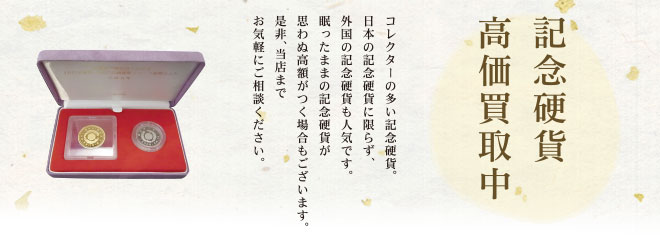 記念硬貨
高価買取中
コレクターの多い記念硬貨。
日本の記念硬貨に限らず、
外国の記念硬貨も人気です。
眠ったままの記念硬貨が
思わぬ高額がつく場合もございます。
是非、当店まで
お気軽にご相談ください。